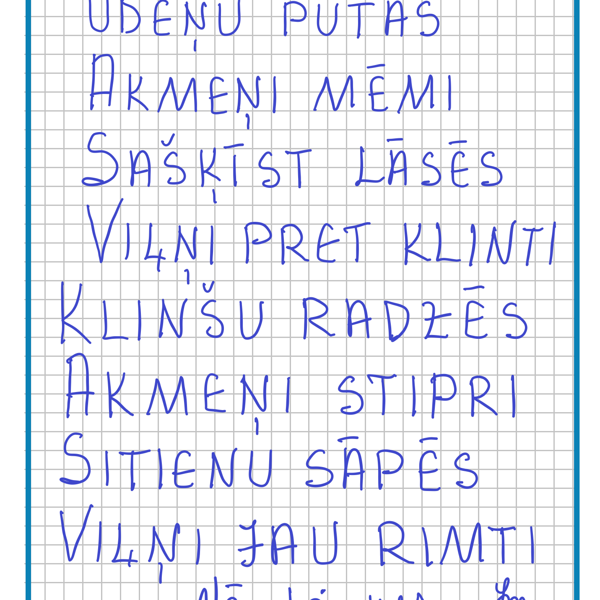 UDEŅU PUTAS
AKMEŅI MĒMI
SAŠĶĪST LĀSĒS
VIĻŅI PRET KLINTI
KLINŠU RADZĒS
AKMEŅI STIPRI
SITIENU SĀPĒS
VIĻŅI JAU RIMTI